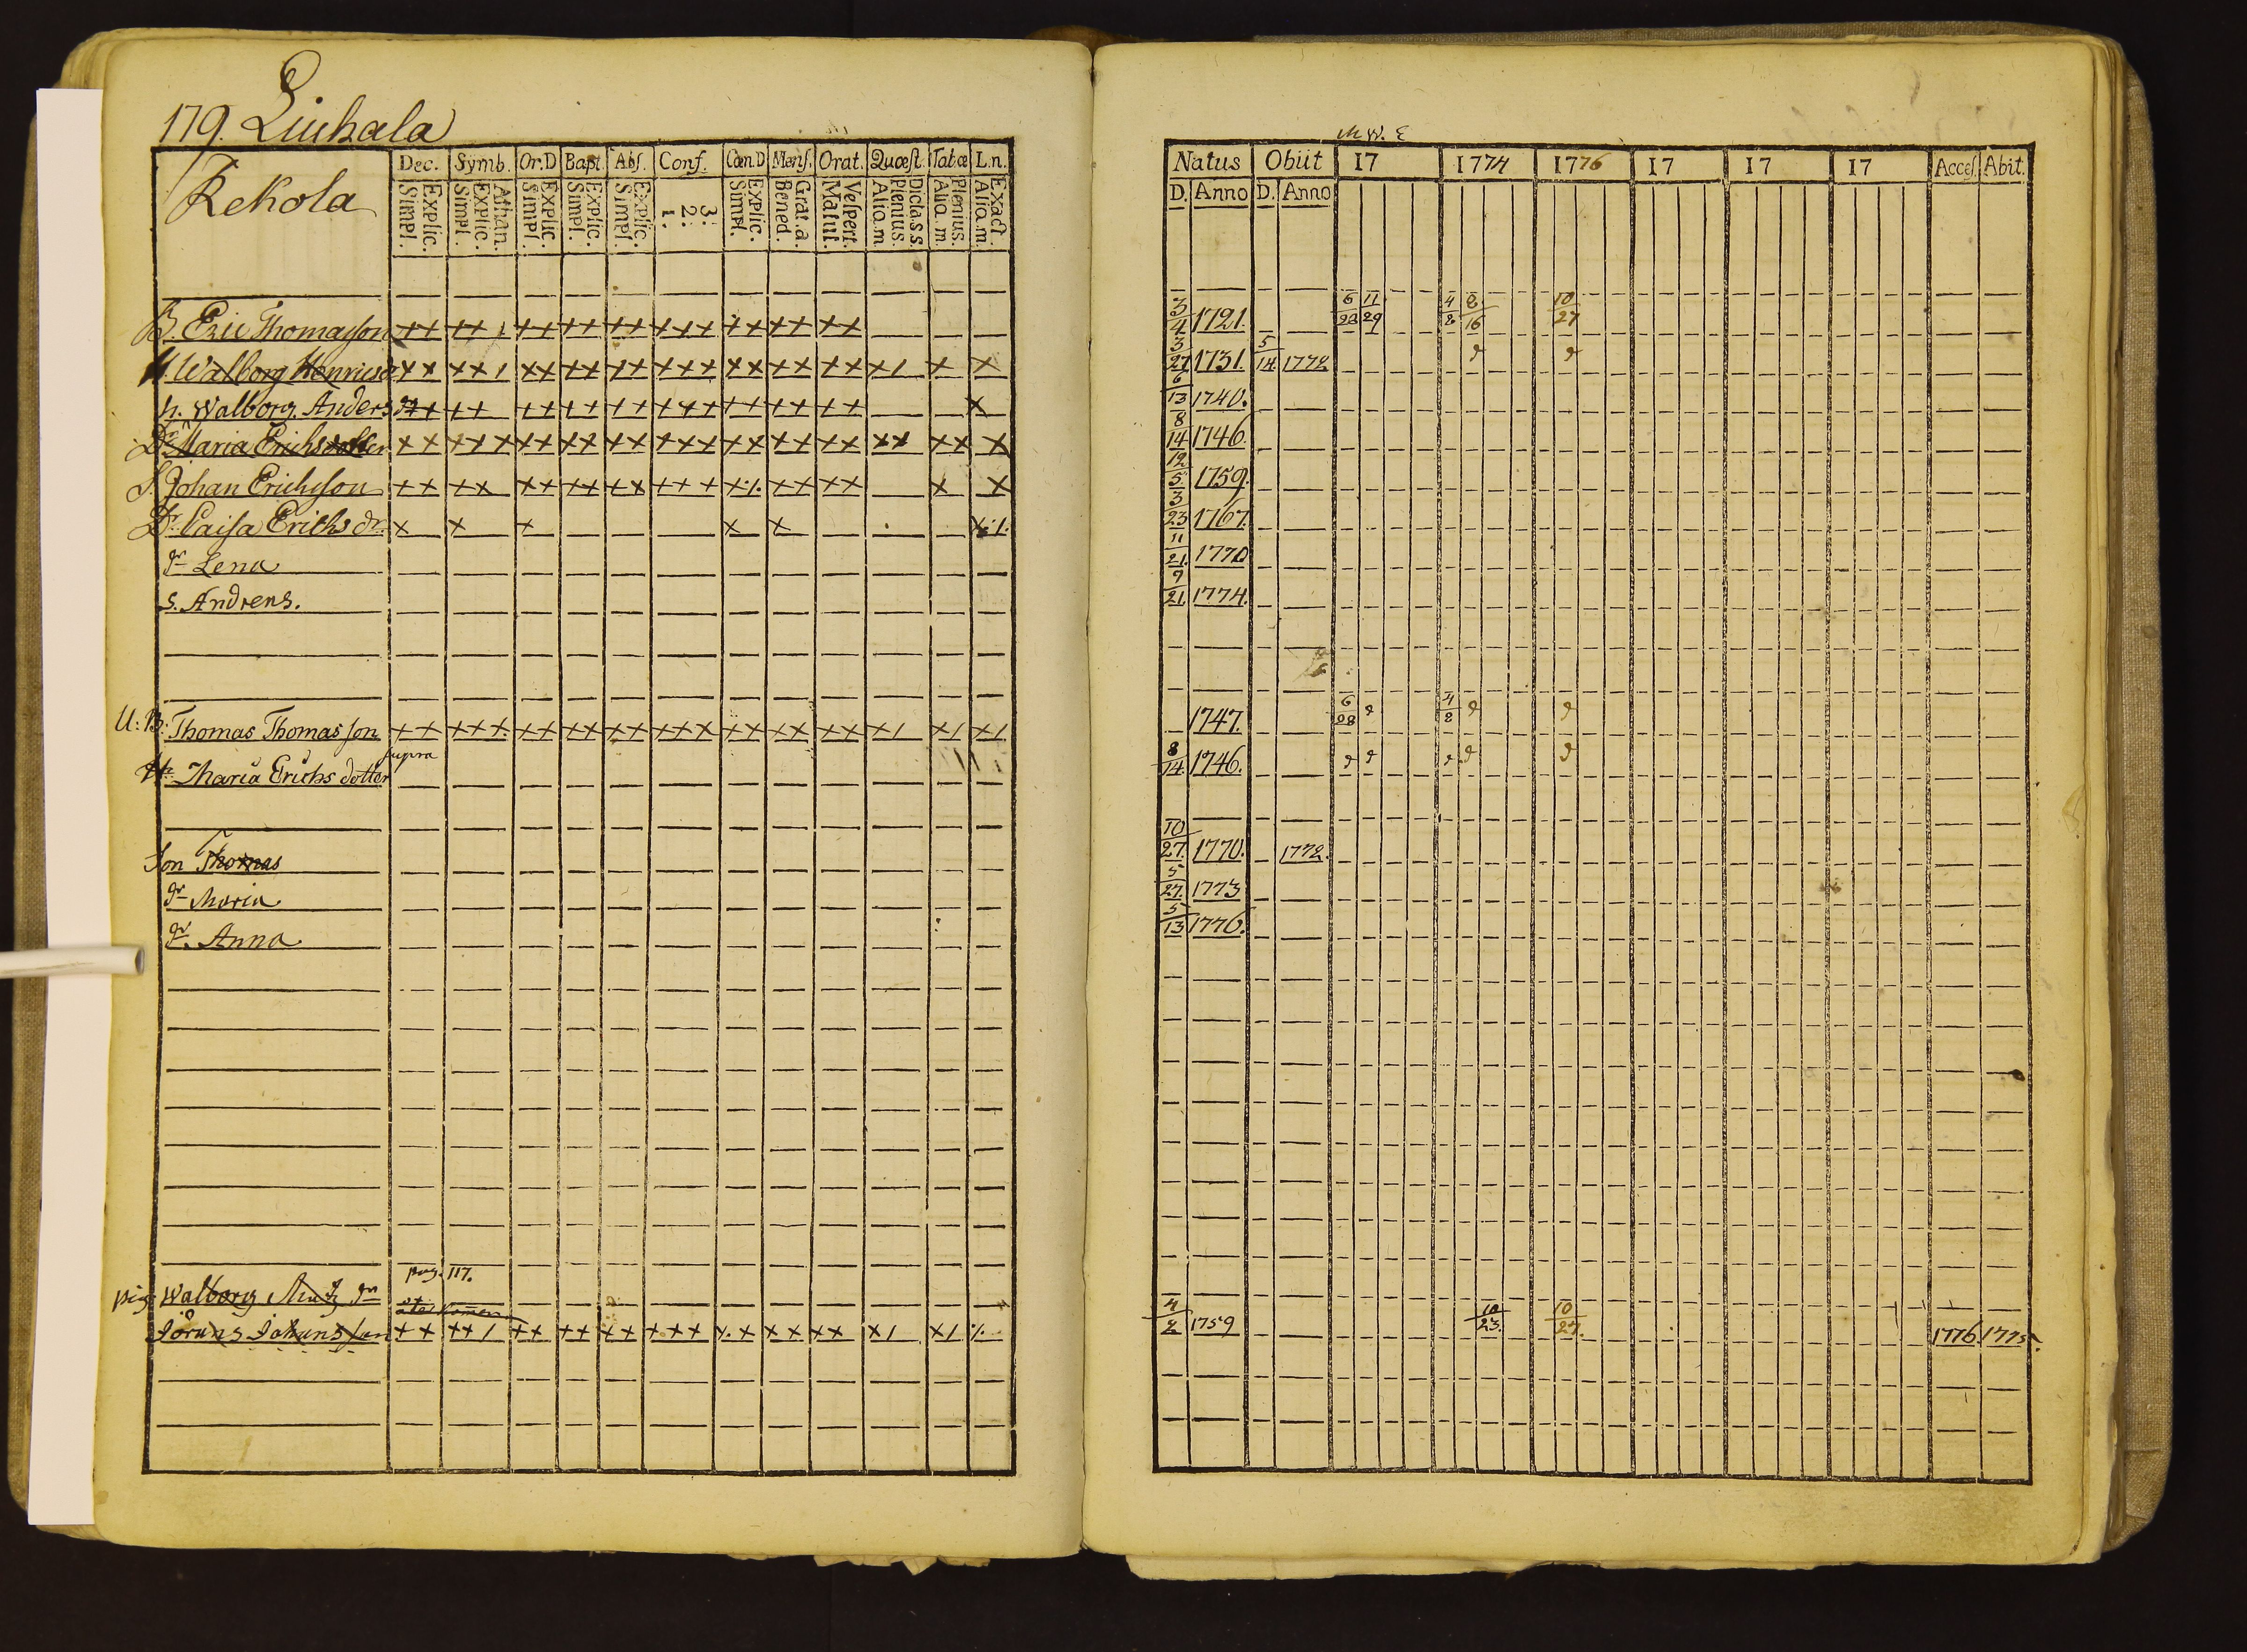 179. Liuhala
Rekola
Dec. Symb. Or.D Bapt. Abs. Conf. Cœn.D Mens. Orat. Quæst. Tabæ L.n.
Explic. Simpl. Athan. Explic. Simpl. Explic. Simpl. Explic. Simpl. Explic. Simpl. 3: 2: 1. Explic. Simpl. Grat. a. Bened. Vespert. Matut. Dicta.s.s. Plenius. Aliq.m. Plenius. Aliq.m. Exact. Aliq.m.
B. Eric Thomasson ++ ++ / ++ ++ ++ +++ ++ ++ ++
H. Walborg Henricsd ++ ++ / ++ ++ ++ +++ ++ ++ ++ +/ + +
h. Walborg Anders dr ++ ++ ++ ++ ++ +++ ++ ++ ++ +
Dr. Maria Erichsdotter ++ +++ ++ ++ ++ +++ ++ ++ ++ ++ ++ +
S. Johan Erichsson ++ ++ ++ ++ ++ +++ +/. ++ ++ + +
Dr. Caisa Erichs dr + + + + + +/.
dr Lena
s. Andreas.
U: B: Thomas Thomasson ++ +++ ++ ++ ++ +++ ++ ++ ++ +/ +/ +/
H. Maria Erichs dotter supra
Son Thomas
dr Maria
dr. Anna
pag. 117.
pig. Walborg dr
återkomen
Jöruns Johansson ++ ++/ ++ ++ ++ +++ /.+ ++ ++ +/ +/ /.
M W. E
Natus Obiit 17 1774 1776 17 17 17 Acces. Abit.
D. Anno D. Anno
3/4 1721. 6/28 11/29 4/8 8/16 10/27
3/27 1731. 5/14 1772
6/13 1740.
8/14 1746.
12/5 1759.
3/23 1767.
11/21. 1770
9/21 1774.
1747. 6/28 4/8
8/14 1746.
10/27. 1770. 1772.
5/27. 1773
5/13 1776.
4/2 1759 10/23. 10/27. 1776. 1775.